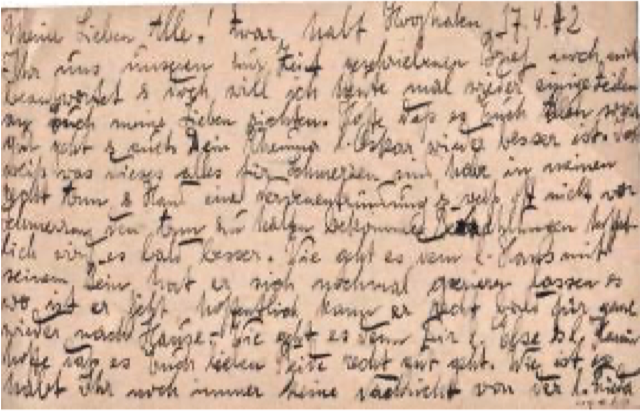 Meine Lieben Alle! Zwar habt Hooghalen, 17.4.42
Ihr uns unseren zur Zeit geschriebenen Brief noch nicht
beantwortet & doch will ich heute mal wieder einige Zeilen
an Euch meine Lieben richten. Hoffe daß es Euch allen
geht & auch Dein Rheuma l. Oskar wieder besser ist.
weiß was dieses alles für Schmerzen sind, habe in meinen
Arm & Hand eine Nervenentzündung & weiß oft nicht vor
Schmerzen den Arm zu halten bekomme hoffent-
lich wird es bald besser. Wie geht es dem l. Hans mit
seinem Bein, hat er sich nochmal operieren lassen &
wo ist er jetzt hoffentlich kann er recht bald für ganz
wieder nach Hause. Wie geht es denn Dir l. Else & l.
hoffe daß es Euch beiden recht gut geht. Wie ist es
habt Ihr noch immer keine Nachricht von der l.